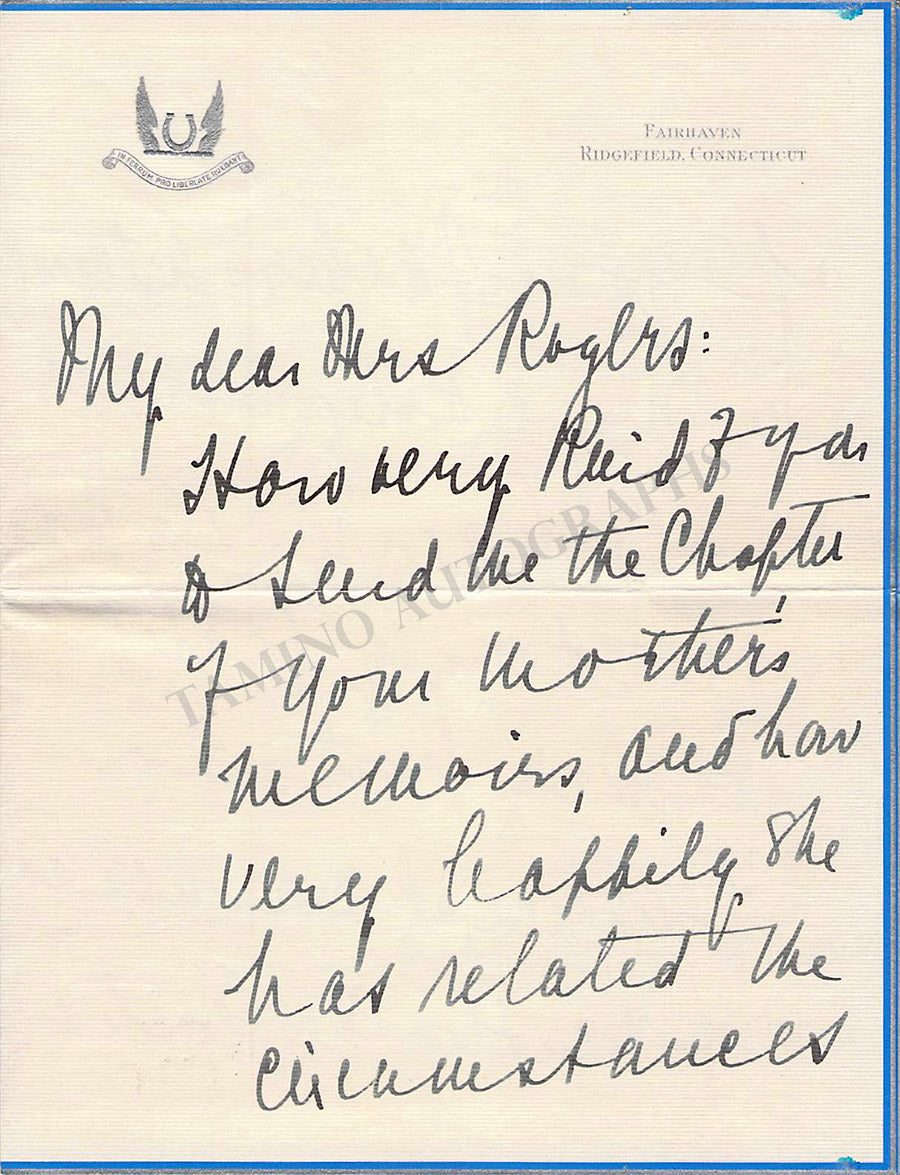 IN FERRUM PRO LIBERTATE RUEBANT
FAIRHAVEN
RIDGEFIELD, CONNECTICUT
My dear Mrs Rogers:
How very kind of you
to send me the Chapter
of your mother's
memoirs, and how
very happily she
has related the
circumstances
TAMINO AUTOGRAPHS